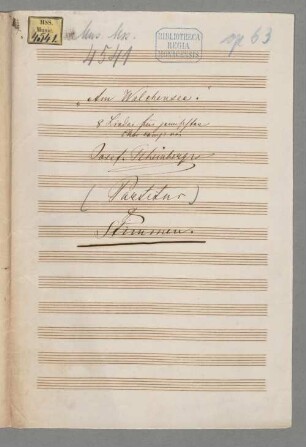 Mus.
Mus.
4541
Mus. Mss.
4541
BIBLIOTHECA
REGIA
MONACENSIS.
op. 63
"Am Walchensee."
8 Lieder für gemischten
Chor comp. von
Josef Rheinberger
(Partitur)
&
Stimmen.